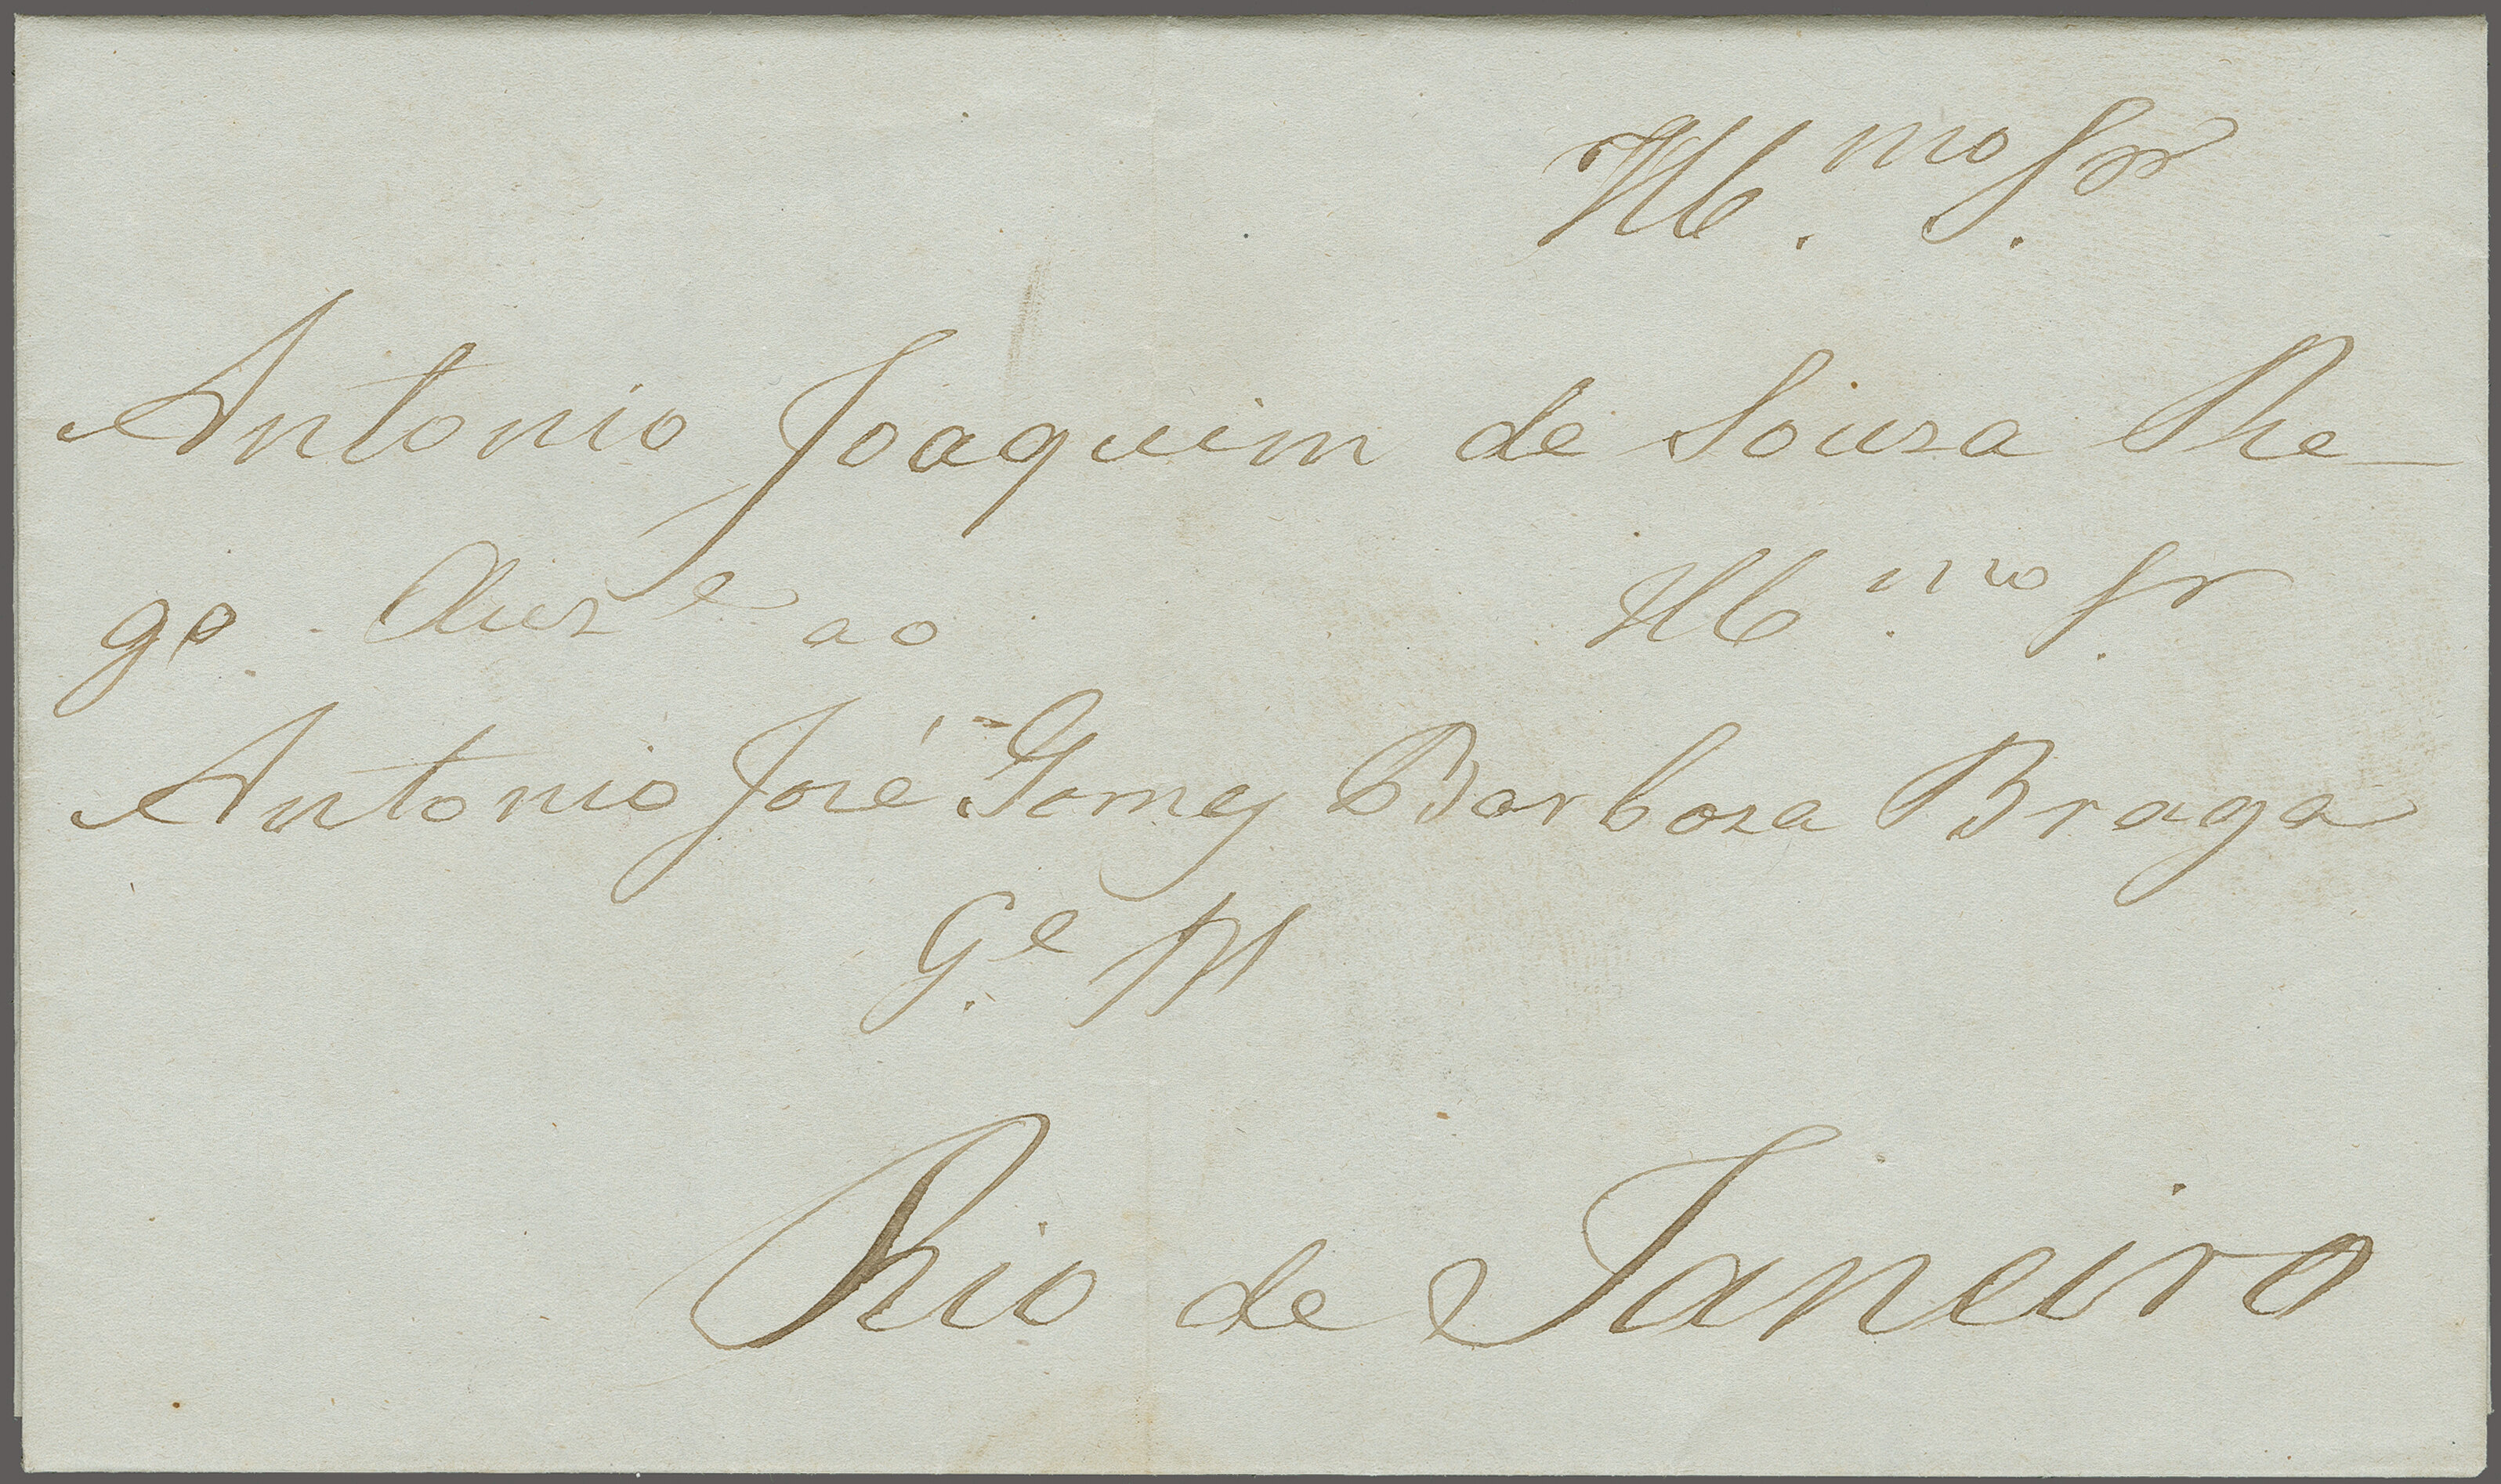 Ill.mo Sr.
Antonio Joaquim de Souza Re-
go Auz.e ao Ill.mo Sr.
Antonio José Gomes Barboza Braga
G.e M
Rio de Janeiro